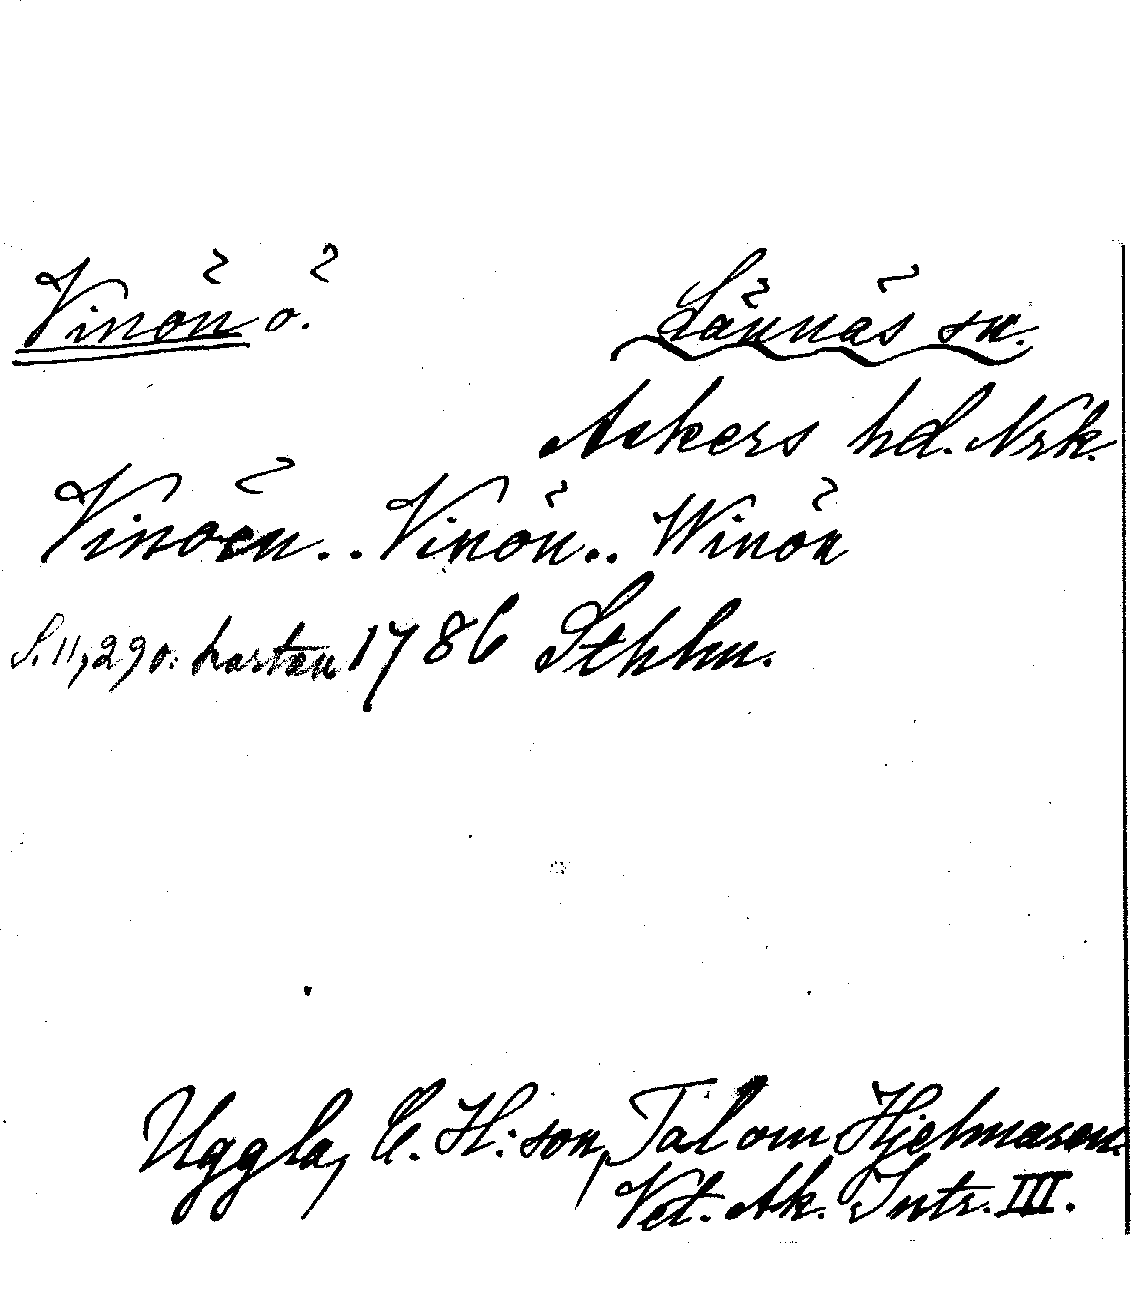 Vinön ö. Lännäs sn.
Askers hd. Nrk.
Vinöen.. Vinön.. Winön
S. 11, 290. kartan 1786 Sthlm.
Uggla, C. H:son, Tal om Hjelmaren.
Vet. Ak. Intr. III.